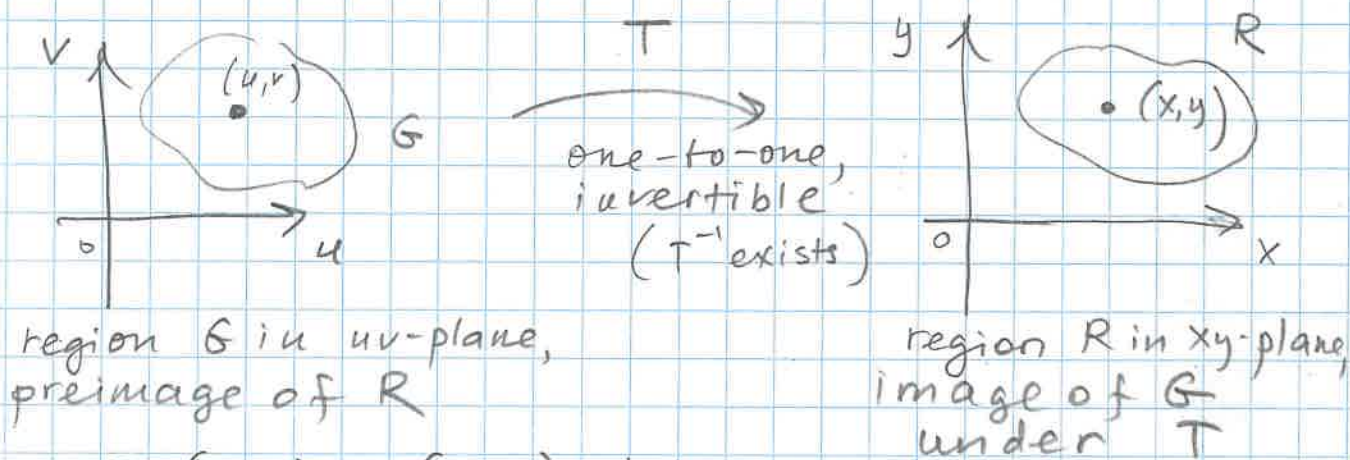 V
(u,v)
G
0
u
T
one-to-one,
invertible
(T⁻¹ exists)
y
R
(x,y)
0
x
region G in uv-plane,
preimage of R
region R in xy-plane,
image of G
under T